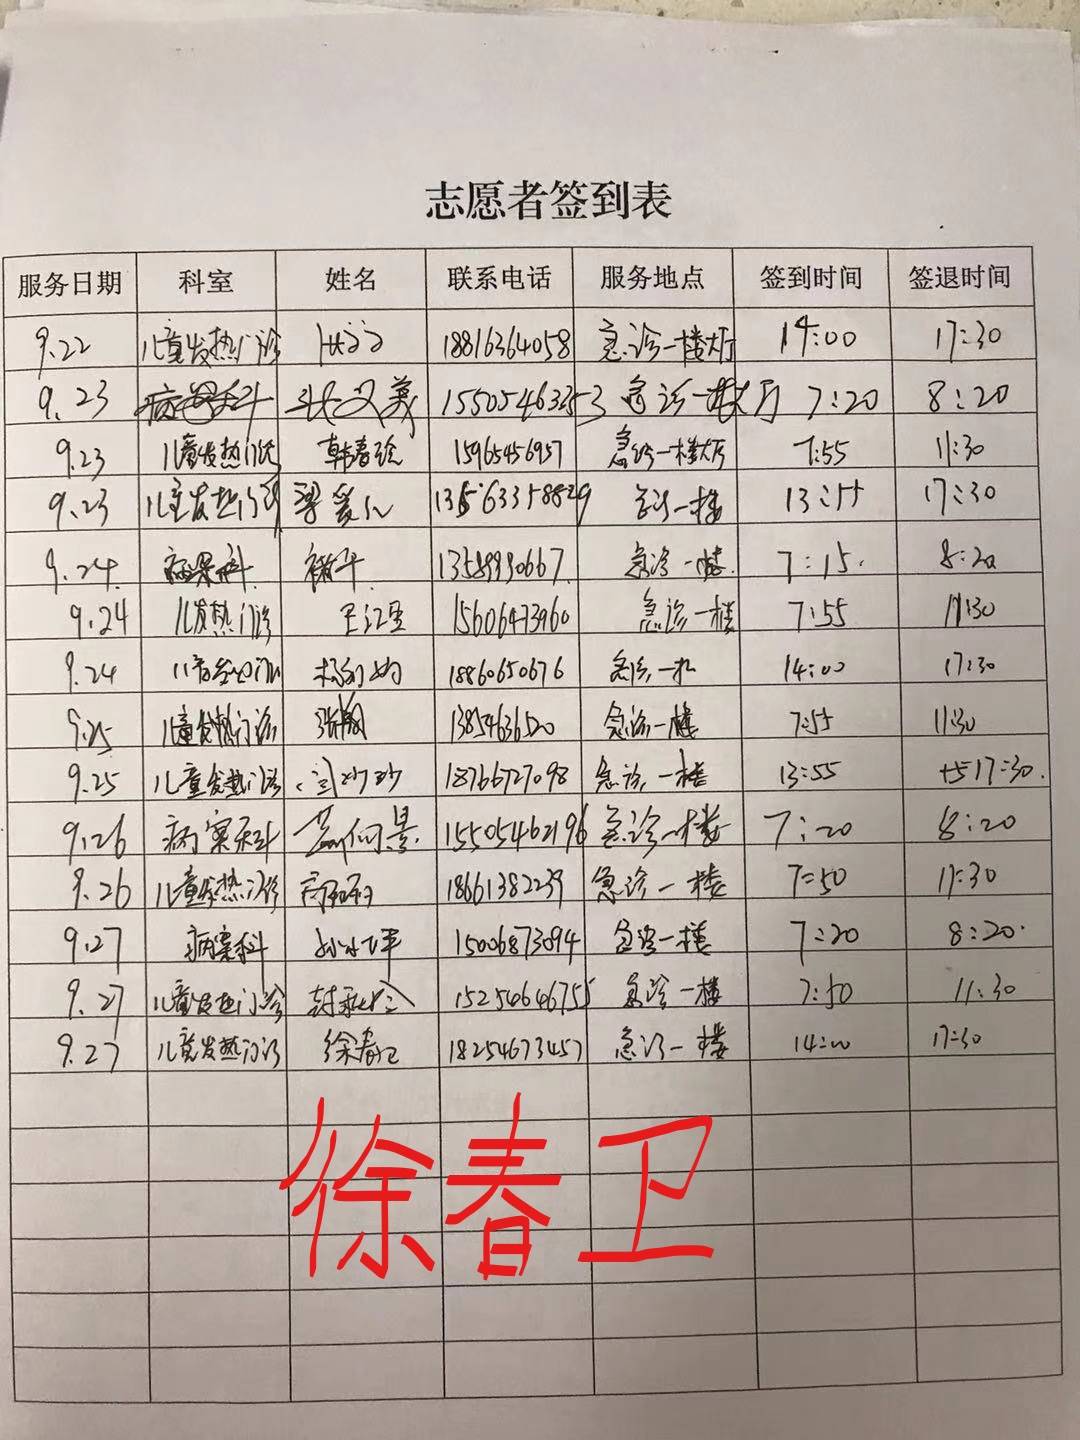 志愿者签到表
服务日期 科室 姓名 联系电话 服务地点 签到时间 签退时间
9.22 儿童发热门诊 18816364058 急诊一楼大厅 14:00 17:30
9.23 张义美 急诊一楼大厅 7:20 8:20
9.23 儿童发热门诊 韩春绘 15965456957 急诊一楼大厅 7:55 11:30
9.23 儿童发热门诊 梁爱 急诊一楼 13:55 17:30
9.24. 病案科. 褚斗 急诊一楼. 7:15. 8:20
9.24 儿发热门诊 15606473960 急诊一楼 7:55 11:30
9.24 18860650676 急诊 14:00 17:30
9.25 儿童发热门诊 急诊一楼 7:55 11:30
9.25 儿童发热门诊 闫沙沙 18766727098 急诊一楼 13:55 17:30.
9.26 病案科 15505462196 急诊一楼 7:20 8:20
9.26 儿童发热门诊 18661382239 急诊一楼 7:50 11:30
9.27 病案科 15006873094 急诊一楼 7:20 8:20.
9.27 儿童发热门诊 15254646755 急诊一楼 7:50 11:30
9.27 儿童发热门诊 徐春卫 18254673457 急诊一楼 14:00 17:30
徐春卫